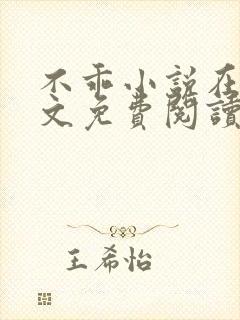 不乖小说在
文免費閱讀
王希怡